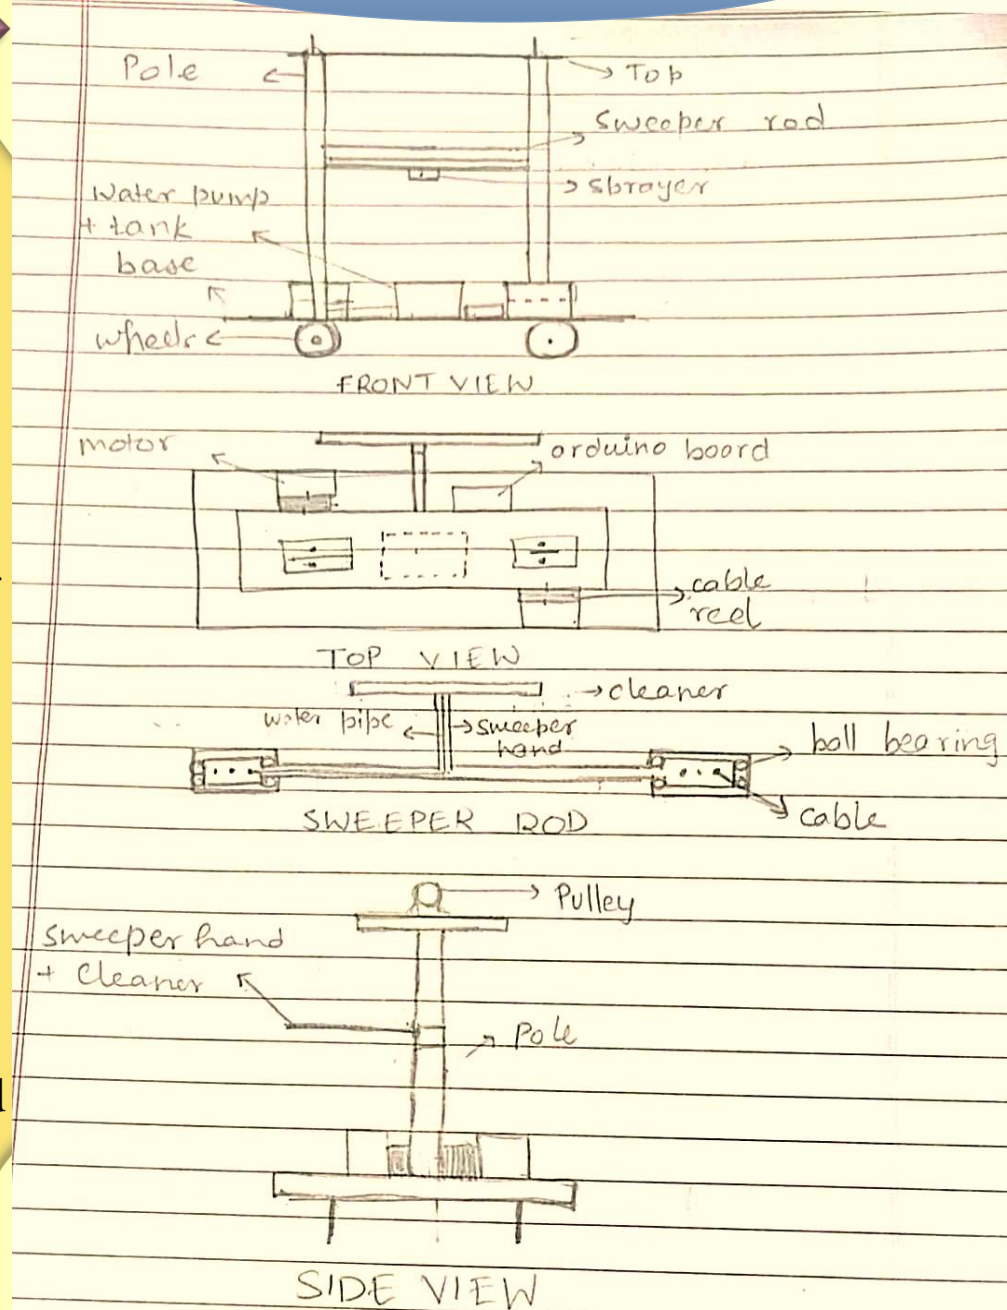 Pole
Top
sweeper rod
sprayer
Water pump
+ tank
base
wheels
FRONT VIEW
motor
arduino board
cable
reel
TOP VIEW
cleaner
water pipe
sweeper
hand
ball bearing
cable
SWEEPER ROD
Pulley
sweeper hand
+ Cleaner
Pole
SIDE VIEW